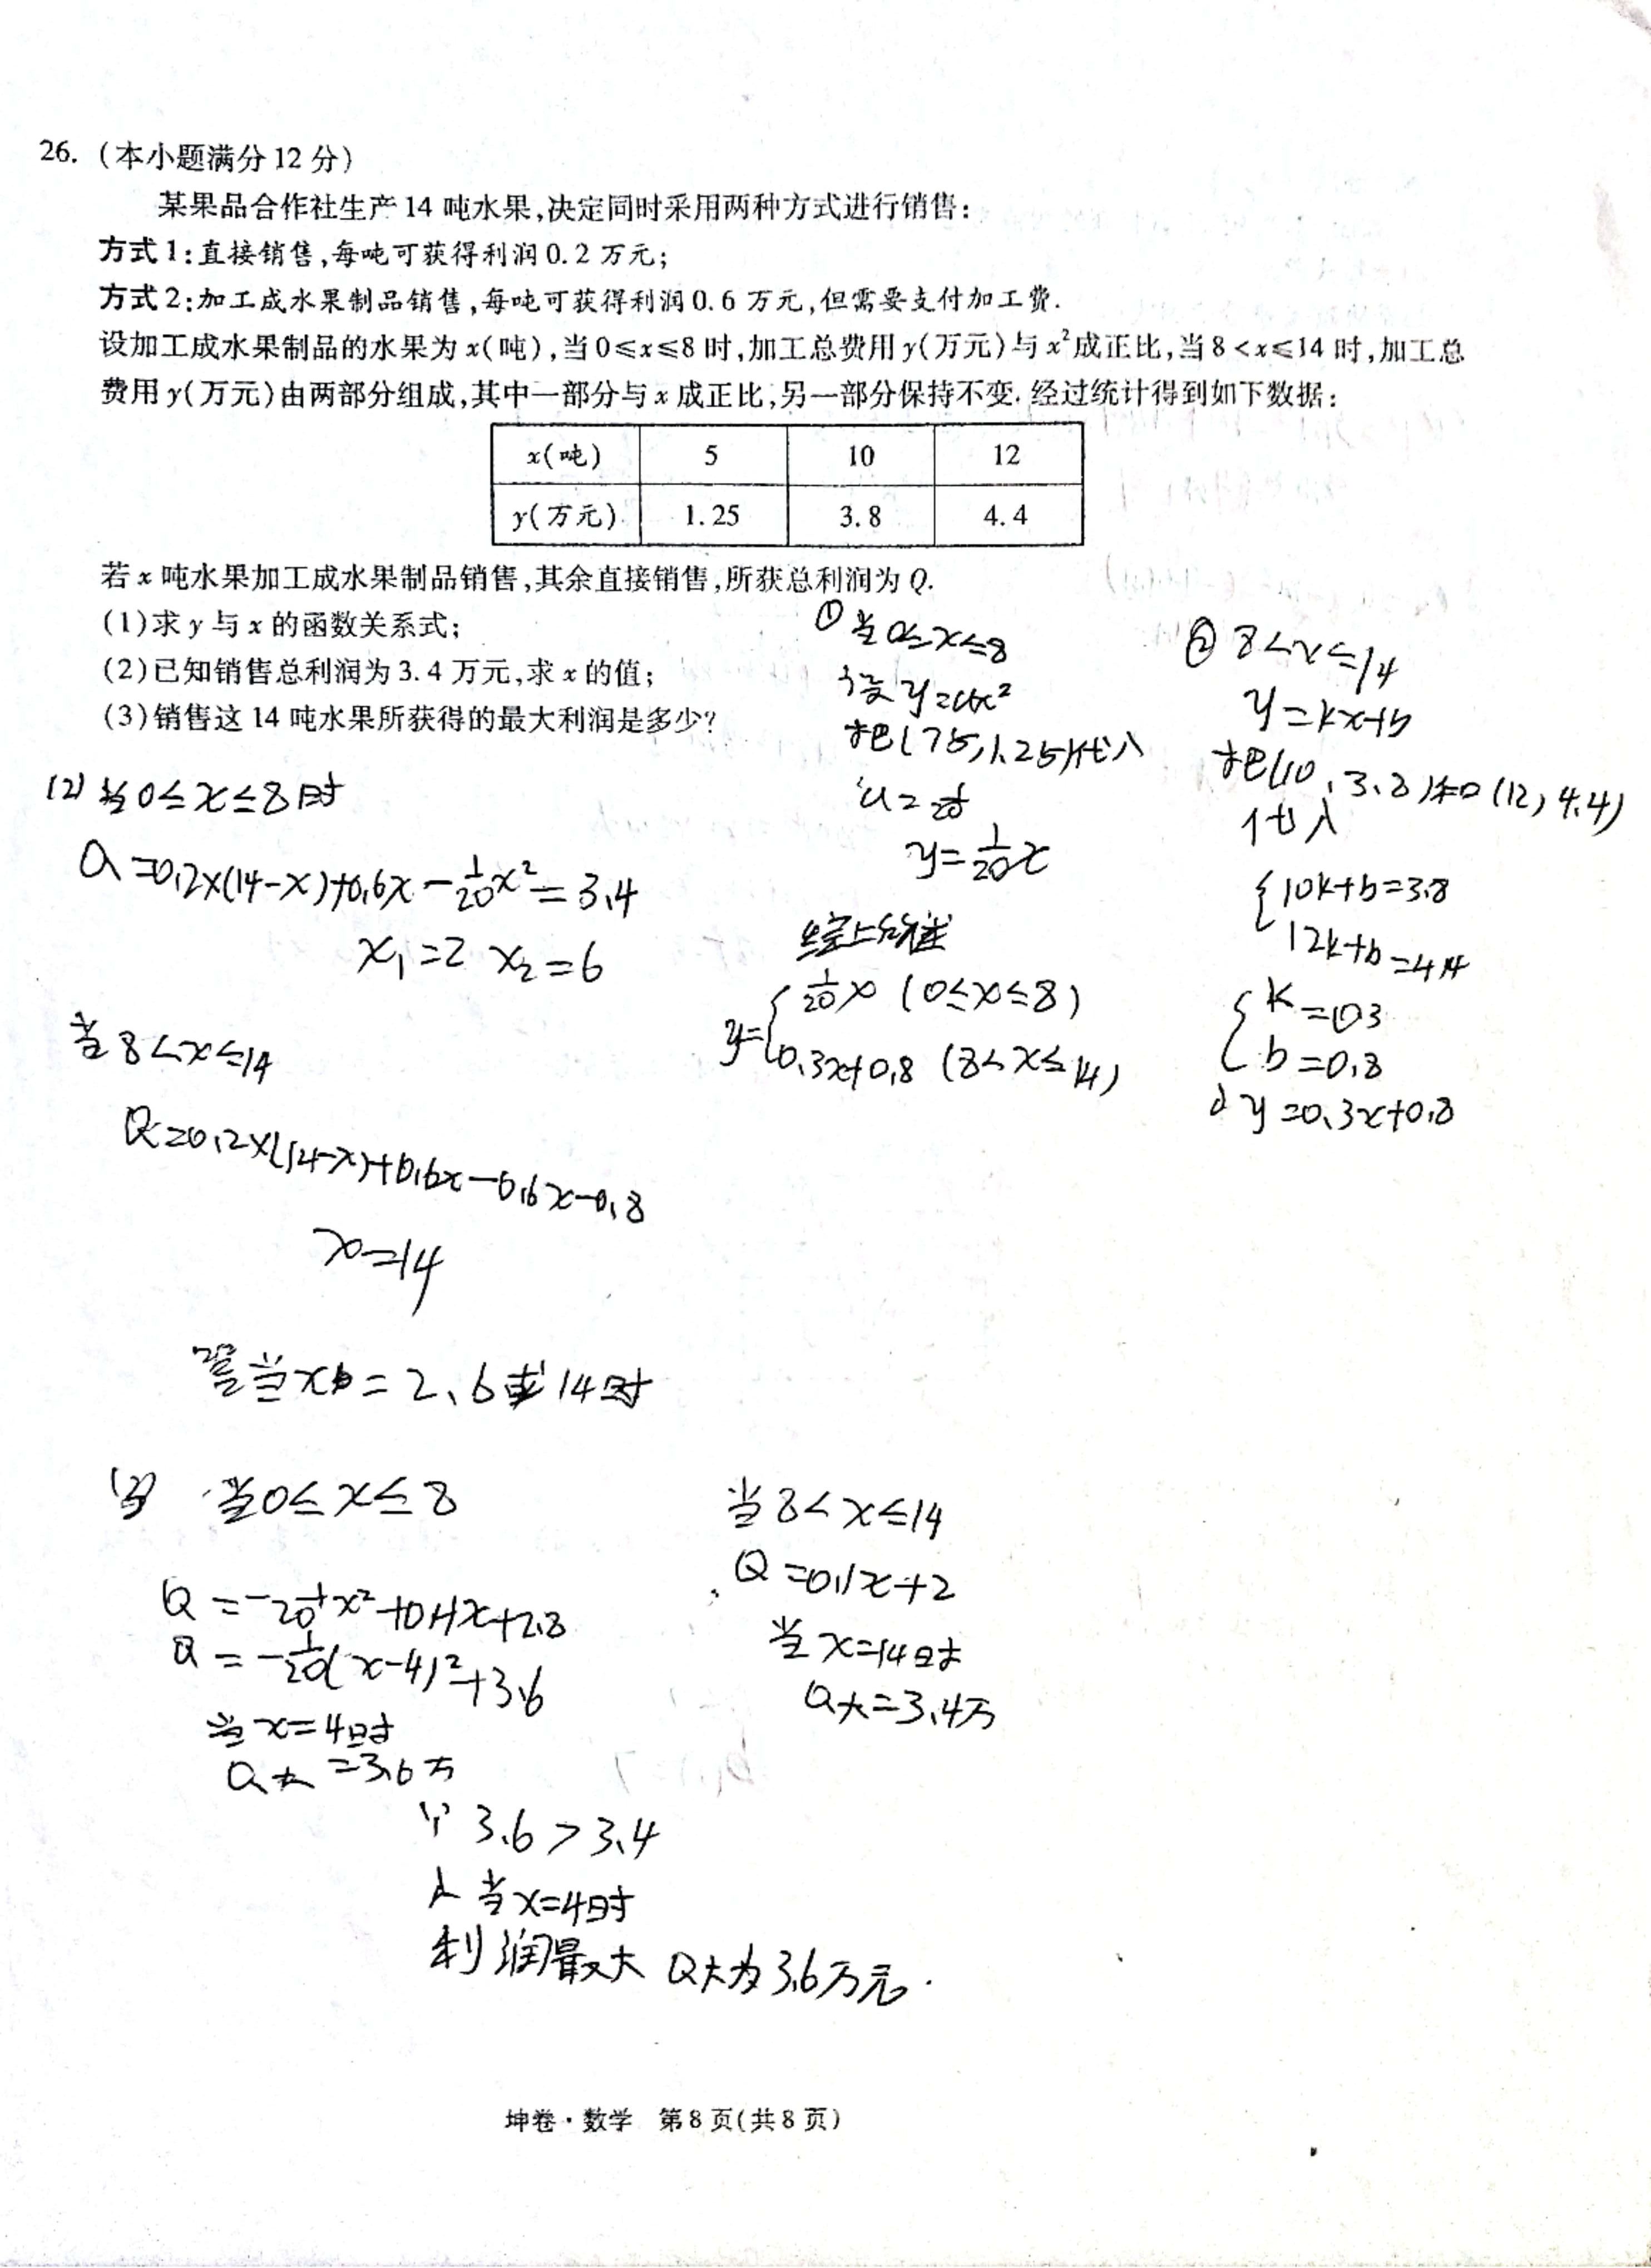 26. (本小题满分12分)
某果品合作社生产14吨水果,决定同时采用两种方式进行销售:
方式1:直接销售,每吨可获得利润0.2万元;
方式2:加工成水果制品销售,每吨可获得利润0.6万元,但需要支付加工费.
设加工成水果制品的水果为x(吨),当0≤x≤8时,加工总费用y(万元)与x²成正比,当8<x≤14时,加工总
费用y(万元)由两部分组成,其中一部分与x成正比,另一部分保持不变.经过统计得到如下数据:
x(吨) 5 10 12
y(万元) 1.25 3.8 4.4
若x吨水果加工成水果制品销售,其余直接销售,所获总利润为Q.
(1)求y与x的函数关系式;
(2)已知销售总利润为3.4万元,求x的值;
(3)销售这14吨水果所获得的最大利润是多少?
① 当0≤x≤8
设y=ax²
把(5,1.25)代入
a=1/20
y=1/20x
综上所述
y={1/20x (0≤x≤8)
0.3x+0.8 (8<x≤14)
② 8<x≤14
y=kx+b
把(10,3.8)和(12,4.4)
代入
{10k+b=3.8
12k+b=4.4
{k=03
b=0.8
∴y=0.3x+0.8
(2)当0≤x≤8时
Q=0.2×(14-x)+0.6x-1/20x²=3.4
x₁=2 x₂=6
当8<x≤14
Q=0.2×(14-x)+0.6x-0.6x-0.8
x=14
当x=2、6或14时
(3) 当0≤x≤8
Q=-1/20x²+0.4x+2.8
Q=-1/20(x-4)²+3.6
当x=4时
Q大=3.6万
当8<x≤14
Q=0.1x+2
当x=14时
Q大=3.4万
∵3.6>3.4
∴当x=4时
利润最大 Q大为3.6万元.
坤卷·数学 第8页(共8页)